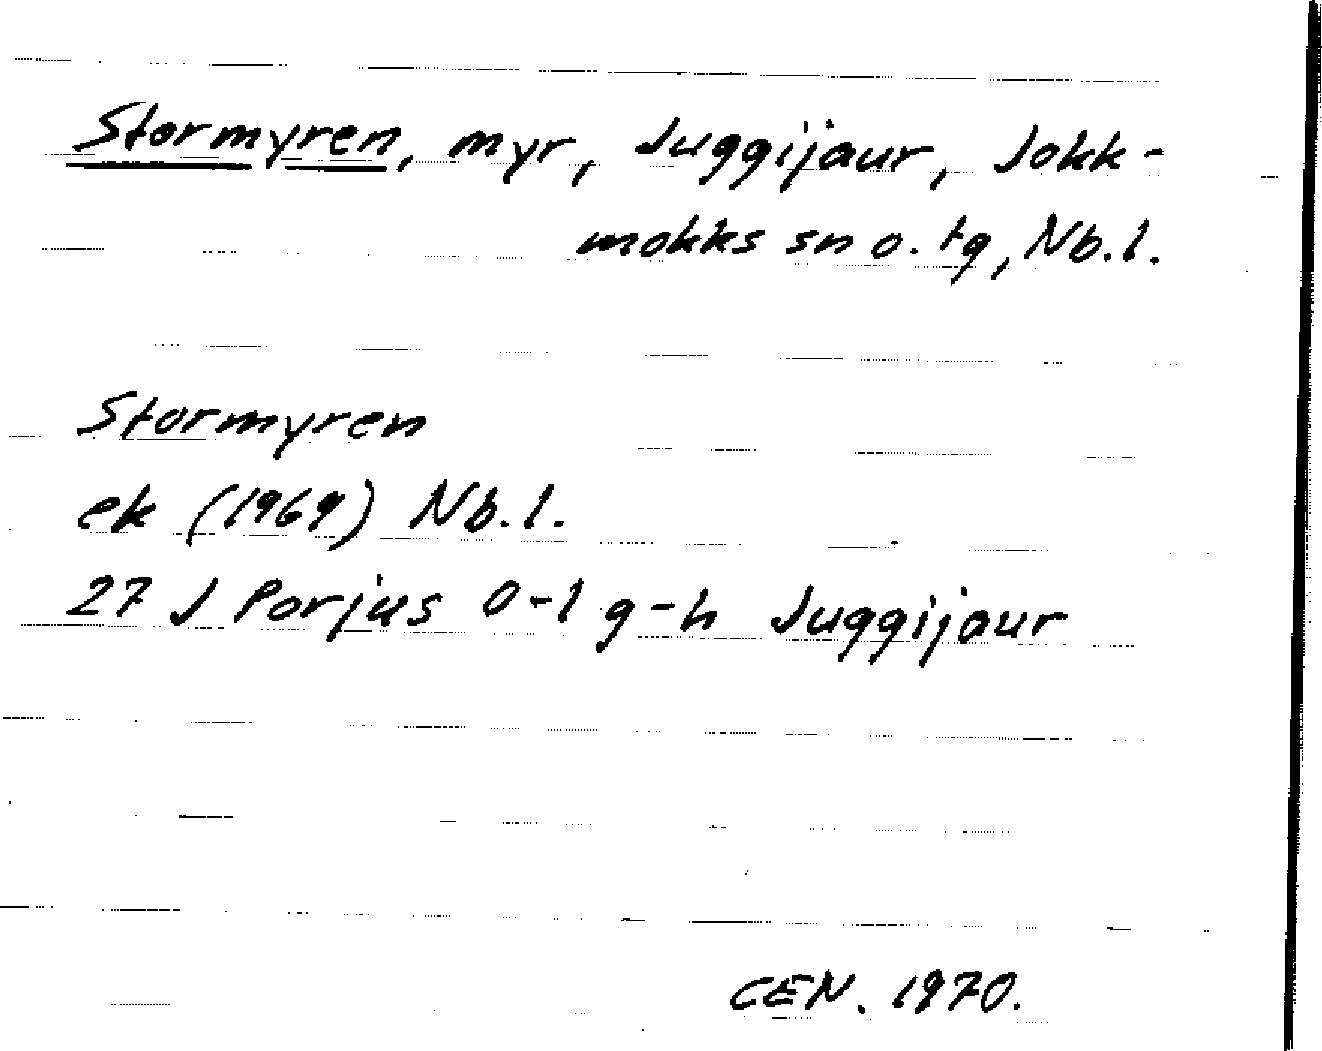 Stormyren, myr, Juggijaur, Jokk-
mokks sn o. tg, Nb.l.
Stormyren
ek (1969) Nb.l.
27 J Porjus 0-1 g-h Juggijaur
CEN. 1970.